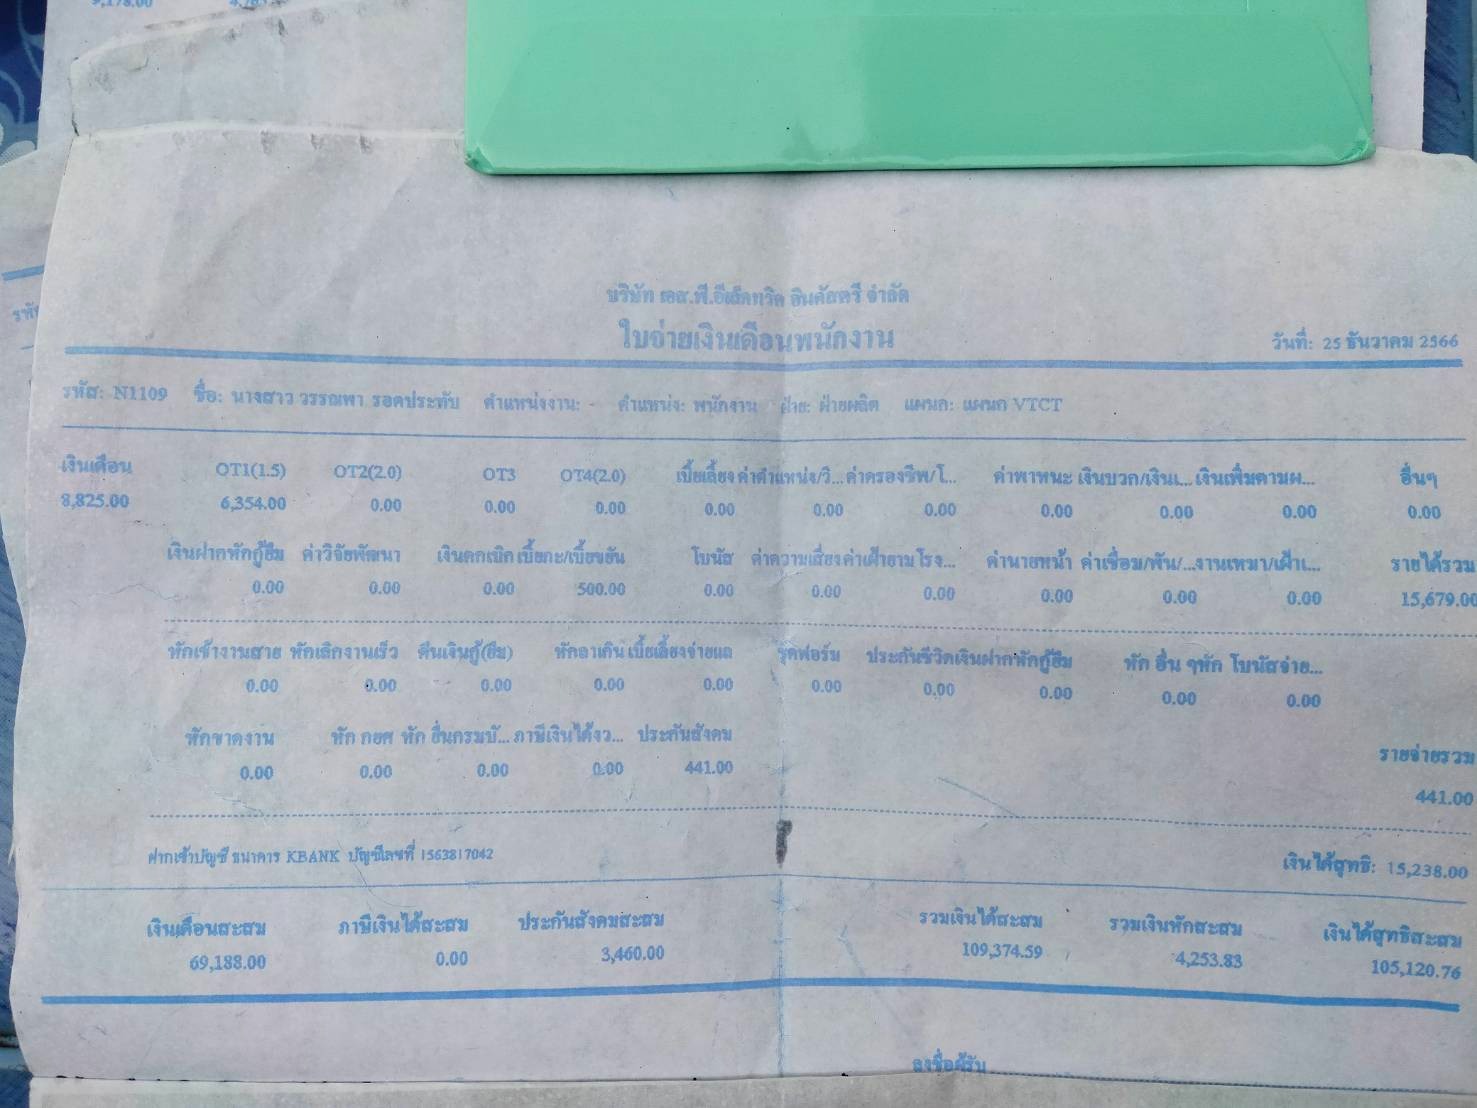 9,178.00
บริษัท เอส.พี.อีเล็คทริค อินดัสตรี จำกัด
ใบจ่ายเงินเดือนพนักงาน
วันที่: 25 ธันวาคม 2566
รหัส: N1109 ชื่อ: นางสาว วรรณพา รอดประทับ ตำแหน่งงาน: - ตำแหน่ง: พนักงาน ฝ่าย: ฝ่ายผลิต แผนก: แผนก VTCT
เงินเดือน OT1(1.5) OT2(2.0) OT3 OT4(2.0) เบี้ยเลี้ยง ค่าตำแหน่ง/วิ... ค่าครองชีพ/โ... ค่าพาหนะ เงินบวก/เงินเ... เงินเพิ่มตามผ... อื่นๆ
8,825.00 6,354.00 0.00 0.00 0.00 0.00 0.00 0.00 0.00 0.00 0.00 0.00
เงินฝากหักกู้ยืม ค่าวิจัยพัฒนา เงินตกเบิก เบี้ยกะ/เบี้ยขยัน โบนัส ค่าความเสี่ยง ค่าเฝ้ายามโรง... ค่านายหน้า ค่าเชื่อม/พัน/... งานเหมา/เฝ้าเ... รายได้รวม
0.00 0.00 0.00 500.00 0.00 0.00 0.00 0.00 0.00 0.00 15,679.00
หักเข้างานสาย หักเลิกงานเร็ว คืนเงินกู้(ยืม) หักลาเกิน เบี้ยเลี้ยงจ่ายแล ชุดฟอร์ม ประกันชีวิต เงินฝากหักกู้ยืม หัก อื่น ๆ หัก โบนัสจ่าย...
0.00 0.00 0.00 0.00 0.00 0.00 0.00 0.00 0.00 0.00
หักขาดงาน หัก กยศ หัก อื่นกรมบั... ภาษีเงินได้งว... ประกันสังคม รายจ่ายรวม
0.00 0.00 0.00 0.00 441.00 441.00
ฝากเข้าบัญชี ธนาคาร KBANK บัญชีเลขที่ 1563817042 เงินได้สุทธิ: 15,238.00
เงินเดือนสะสม ภาษีเงินได้สะสม ประกันสังคมสะสม รวมเงินได้สะสม รวมเงินหักสะสม เงินได้สุทธิสะสม
69,188.00 0.00 3,460.00 109,374.59 4,253.83 105,120.76
ลงชื่อผู้รับ